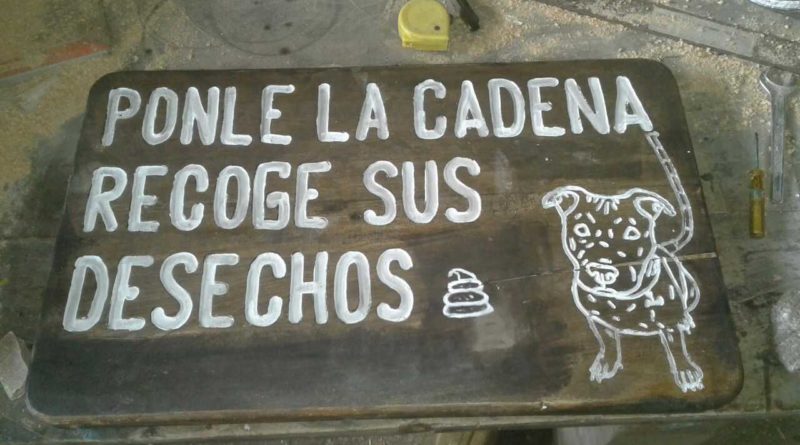 PONLE LA CADENA
RECOGE SUS
DESECHOS